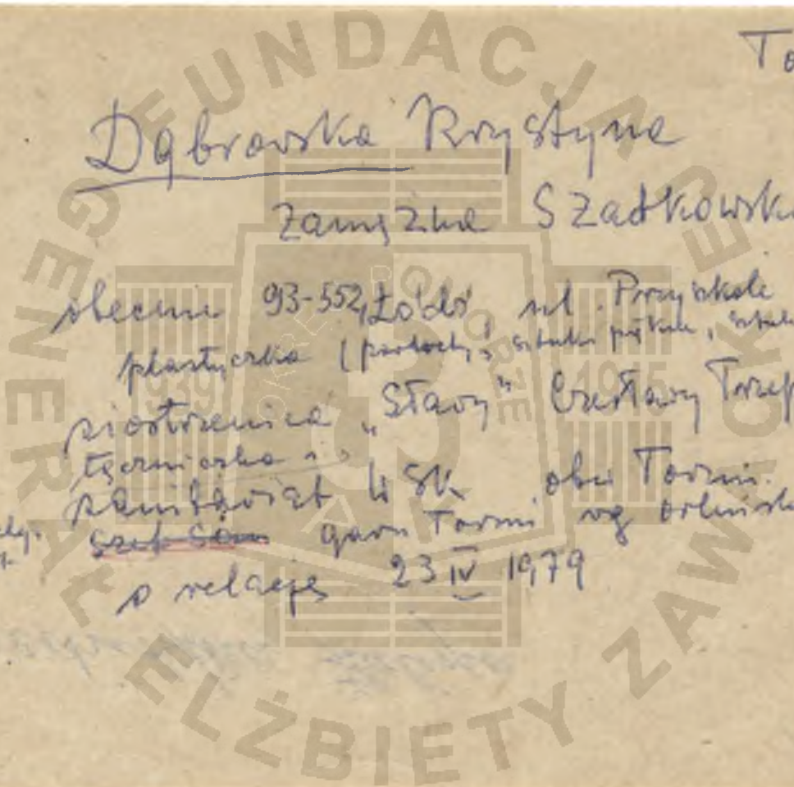 To
Dąbrowska Krystyna
zamężna Szadkowska
obecnie 93-552, Łódź ul. Przyszkole
plastyczka ( sztuki piękne,
siostrzenica „Sławy" Czesławy
łączniczka i
sanitariat WSK obw Toruń
Szef San garn Toruń wg
o relację 23 IV 1979
FUNDACJA GENERAŁ ELŻBIETY ZAWACKIEJ
1939 1945